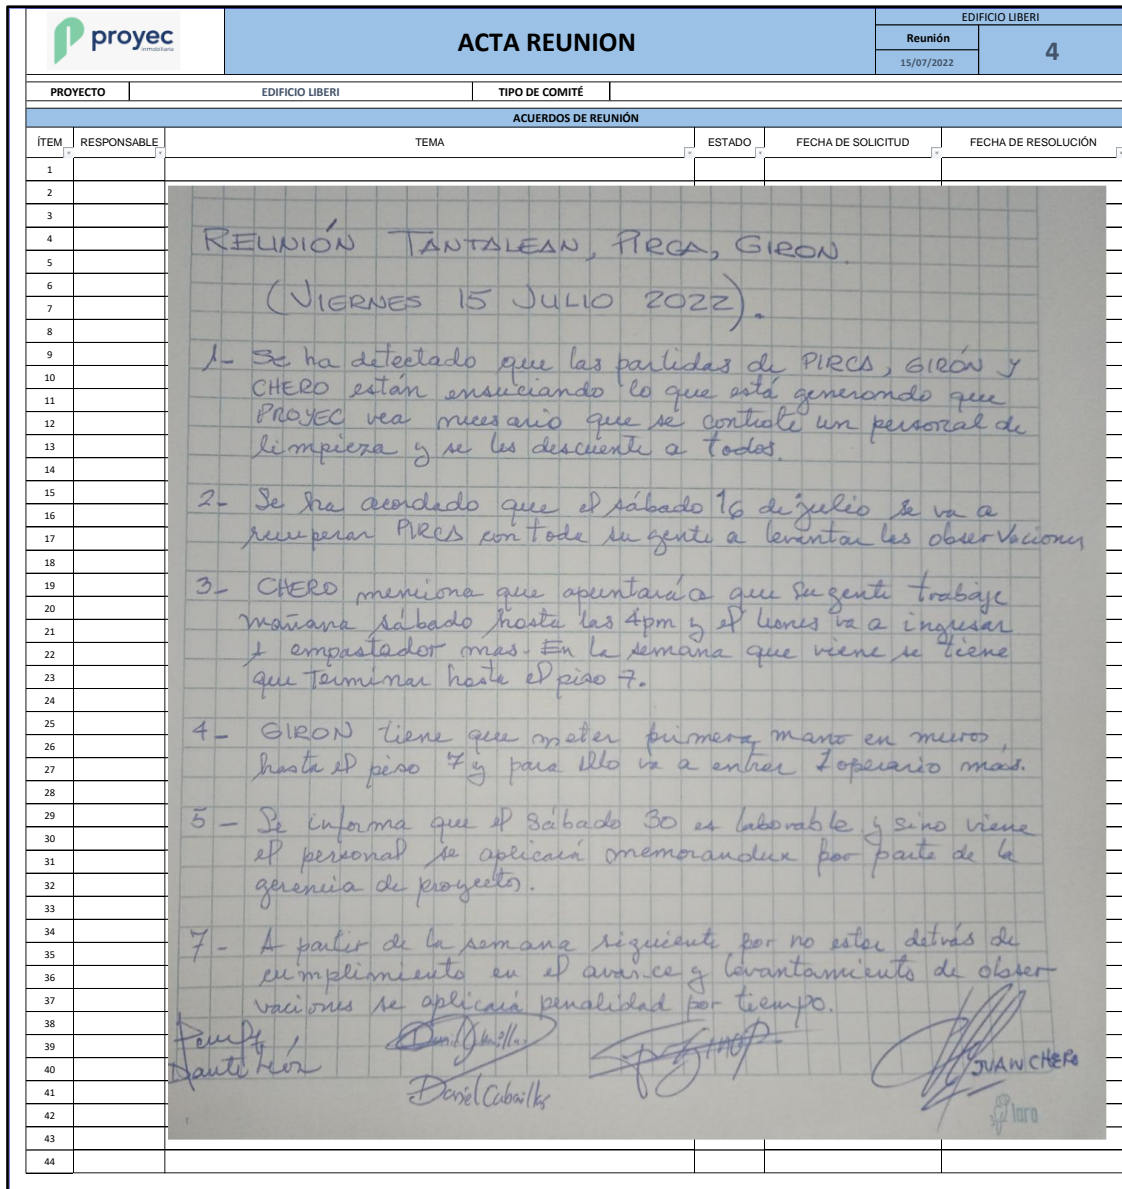 proyec
inmobiliaria
ACTA REUNION
EDIFICIO LIBERI
Reunión
15/07/2022
4
PROYECTO
EDIFICIO LIBERI
TIPO DE COMITÉ
ACUERDOS DE REUNIÓN
ÍTEM RESPONSABLE TEMA ESTADO FECHA DE SOLICITUD FECHA DE RESOLUCIÓN
1
2
3
4
5
6
7
8
9
10
11
12
13
14
15
16
17
18
19
20
21
22
23
24
25
26
27
28
29
30
31
32
33
34
35
36
37
38
39
40
41
42
43
44
REUNIÓN TANTALEAN, PIRCA, GIRON.
(VIERNES 15 JULIO 2022).
1- Se ha detectado que las partidas de PIRCA, GIRÓN Y
CHERO están ensuciando lo que está generando que
PROYEC vea necesario que se contrate un personal de
limpieza y se les descuente a todos.
2- Se ha acordado que el sábado 16 de julio se va a
recuperar PIRCA con toda su gente a levantar las observaciones
3- CHERO menciona que apuntará a que su gente trabaje
mañana sábado hasta las 4pm y el lunes va a ingresar
1 empastador mas. En la semana que viene se tiene
que terminar hasta el piso 7.
4- GIRON tiene que meter primera mano en muros,
hasta el piso 7 y para ello va a entrar 1 operario mas.
5- Se informa que el Sábado 30 es laborable y sino viene
el personal se aplicará memorandux por parte de la
gerencia de proyectos.
7- A partir de la semana siguiente por no estar detrás de
cumplimiento en el avance y levantamiento de obser
vaciones se aplicará penalidad por tiempo.
Dante León
Daniel Cabanillas
JUAN CHERO
lara